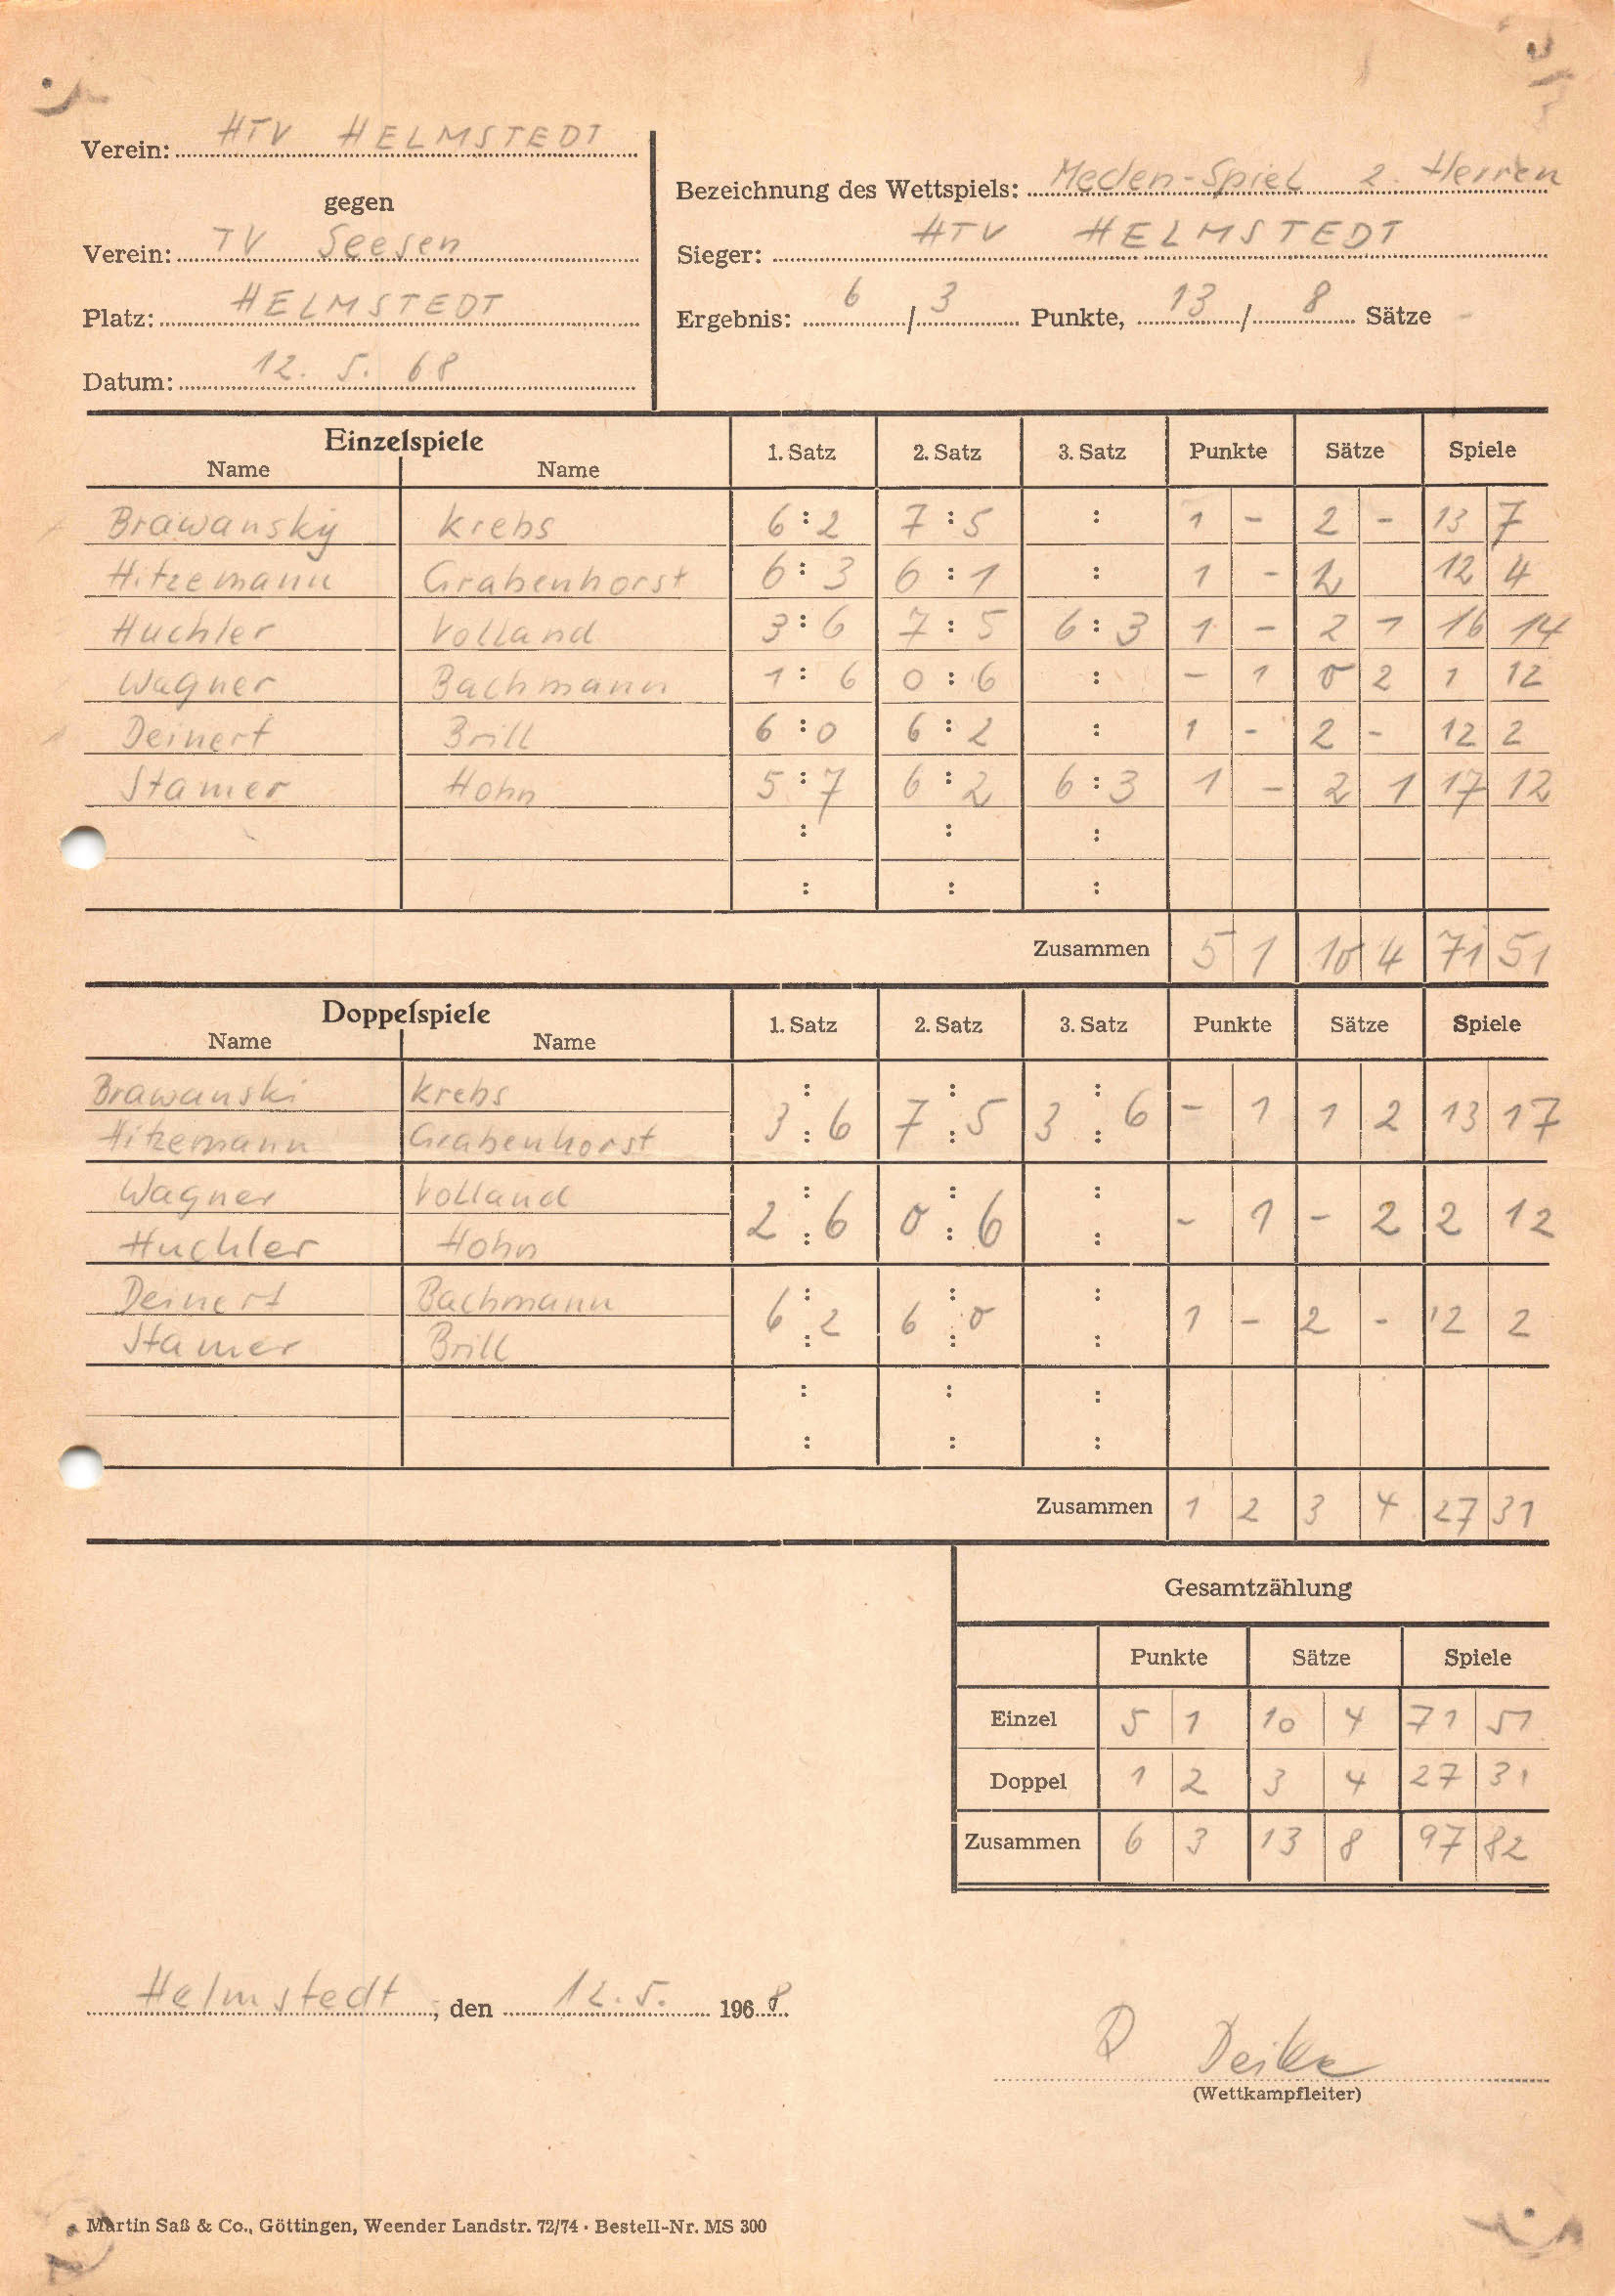 Verein: HTV HELMSTEDT
gegen
Verein: TV Seesen
Platz: HELMSTEDT
Datum: 12. 5. 68
Bezeichnung des Wettspiels: Meden-Spiel 2. Herren
Sieger: HTV HELMSTEDT
Ergebnis: 6 / 3 Punkte, 13 / 8 Sätze
Einzelspiele
Name Name 1. Satz 2. Satz 3. Satz Punkte Sätze Spiele
Brawansky Krebs 6:2 7:5 : 1 - 2 - 13 7
Hitzemann Grabenhorst 6:3 6:1 : 1 - 2 12 4
Huchler Volland 3:6 7:5 6:3 1 - 2 1 16 14
Wagner Bachmann 1:6 0:6 : - 1 0 2 1 12
Deinert Brill 6:0 6:2 : 1 - 2 - 12 2
Stamer Hohn 5:7 6:2 6:3 1 - 2 1 17 12
: : :
: : :
Zusammen 5 1 10 4 71 51
Doppelspiele
Name Name 1. Satz 2. Satz 3. Satz Punkte Sätze Spiele
Brawanski Krebs
Hitzemann Grabenhorst 3:6 7:5 3:6 - 1 1 2 13 17
Wagner Volland
Huchler Hohn 2:6 0:6 : - 1 - 2 2 12
Deinert Bachmann
Stamer Brill 6:2 6:0 : 1 - 2 - 12 2
: : :
: : :
Zusammen 1 2 3 4 27 31
Gesamtzählung
Punkte Sätze Spiele
Einzel 5 1 10 4 71 51
Doppel 1 2 3 4 27 31
Zusammen 6 3 13 8 97 82
Helmstedt, den 12. 5. 1968
Deike
(Wettkampfleiter)
Martin Saß & Co., Göttingen, Weender Landstr. 72/74 · Bestell-Nr. MS 300